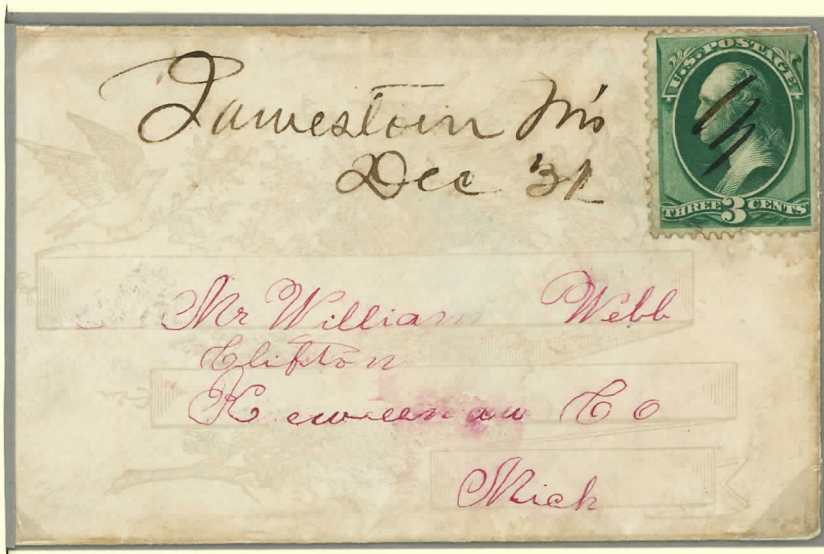 Jamestown Mo
Dec 31
U.S. POSTAGE
THREE 3 CENTS
Mr William Webb
Clifton
Keweenaw Co
Mich